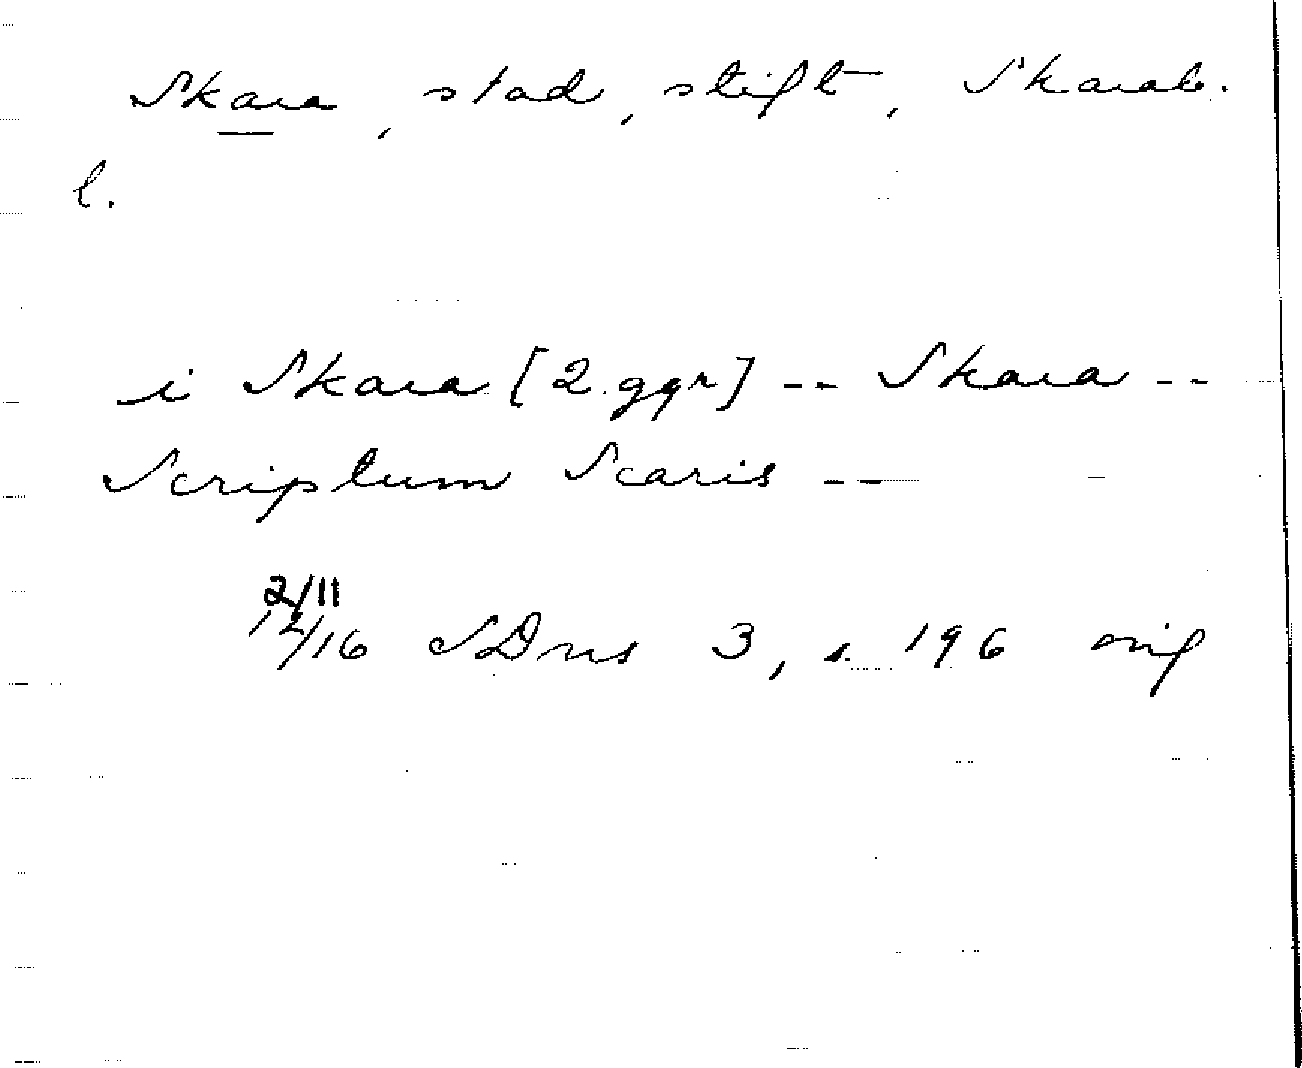 Skara, stad, stift, Skarab.
l.
i Skara [2 ggr] -- Skara --
Scriptum Scaris --
2/11
14/16 SDns 3, s. 196 orig